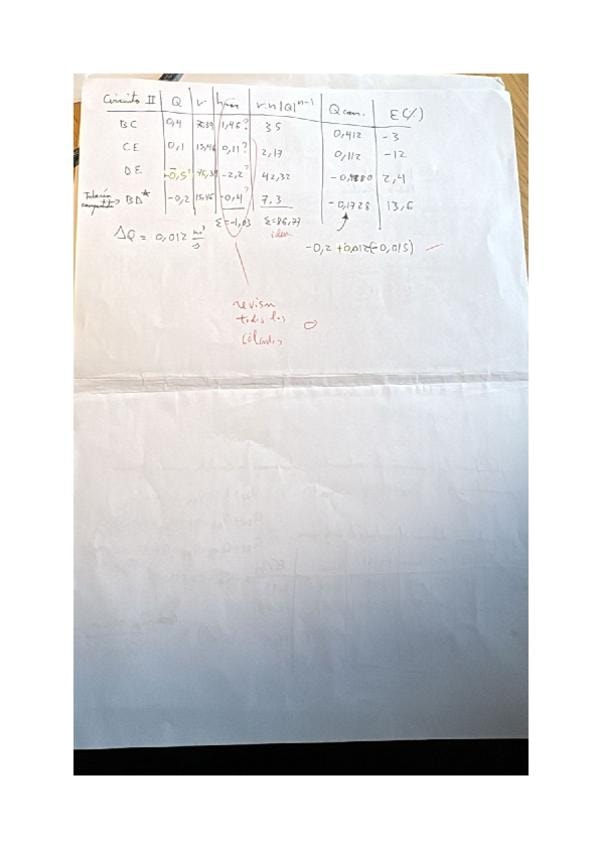 Circuito II | Q | r | hfan | r.n|Q|ⁿ⁻¹ | Q corr. | E(%)
BC | 0,4 | 1,45? | 35 | 0,412 | -3
CE | 0,1 | 15,46 | 0,11? | 2,17 | 0,112 | -12
DE | -0,5 | -2,2? | 42,32 | 2,4
Tubería compartida → BD* | -0,2 | 15,46 | -0,4? | 7,3 | -0,1728 | 13,6
Σ=-1,03 Σ=86,77
ΔQ = 0,012 m³/s
idem
-0,2 +0,012(-0,015)
revisar
todos los
cálculos